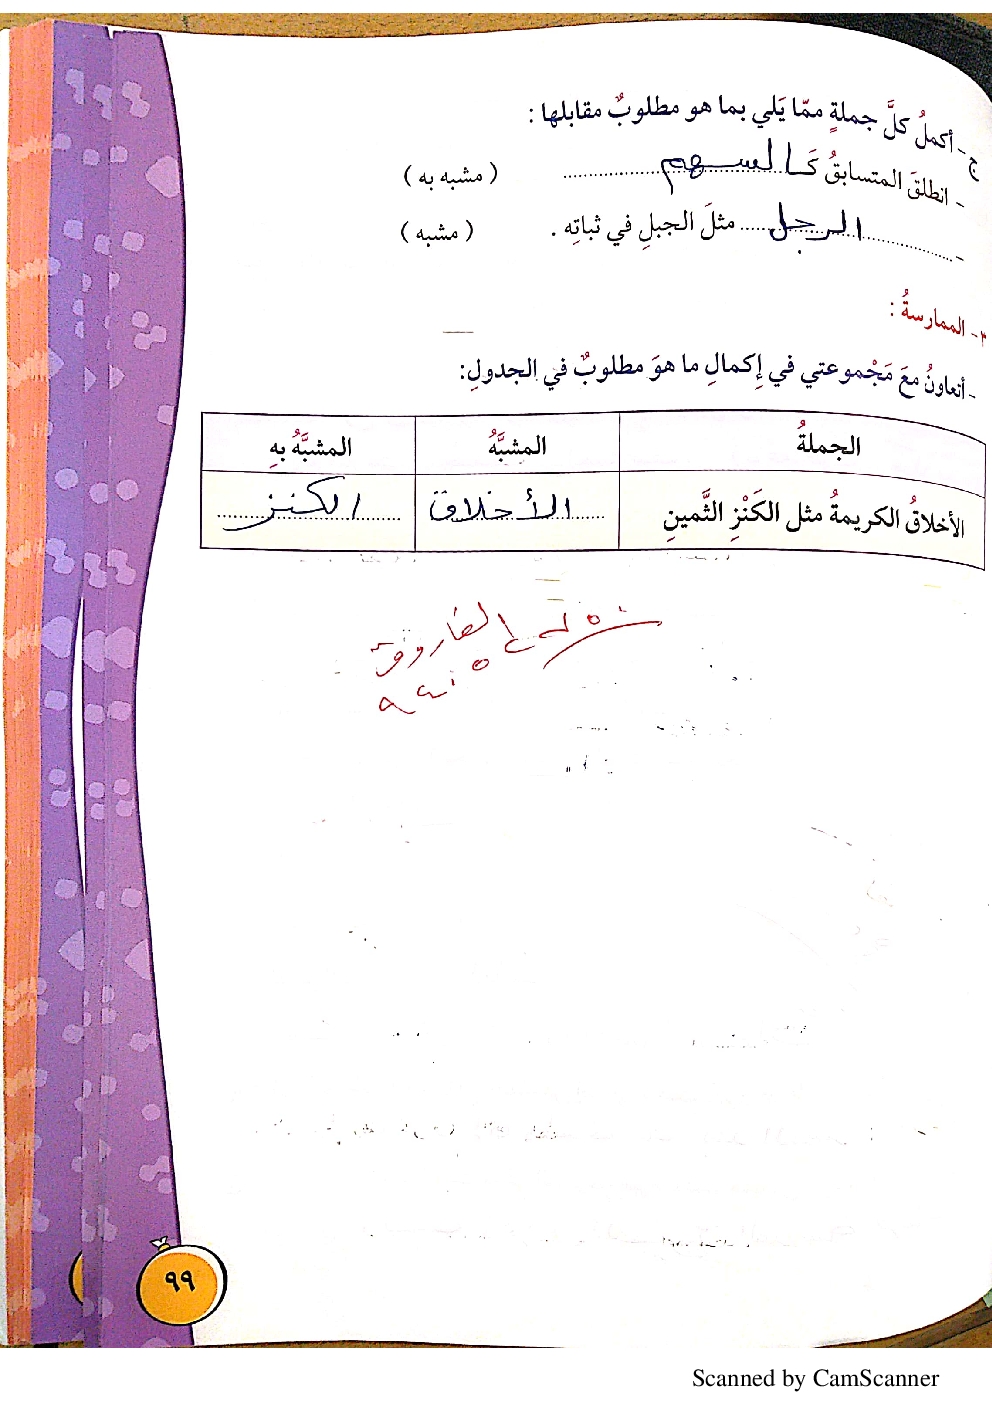 ج - أكملُ كلَّ جملةٍ ممّا يَلي بما هو مطلوبٌ مقابلها :
- انطلقَ المتسابقُ كَـالسهم .......... ( مشبه به )
- ..........الرجل..... مثلَ الجبلِ في ثباتِه . ( مشبه )
٣- الممارسةُ :
- أتعاونُ معَ مَجْموعتي في إِكمالِ ما هوَ مطلوبٌ في الجدولِ:
الجملةُ المشبَّهُ المشبَّهُ بهِ
الأخلاقُ الكريمةُ مثل الكَنْزِ الثَّمينِ الأخلاق الكنز
الفاروق
٩٩
Scanned by CamScanner